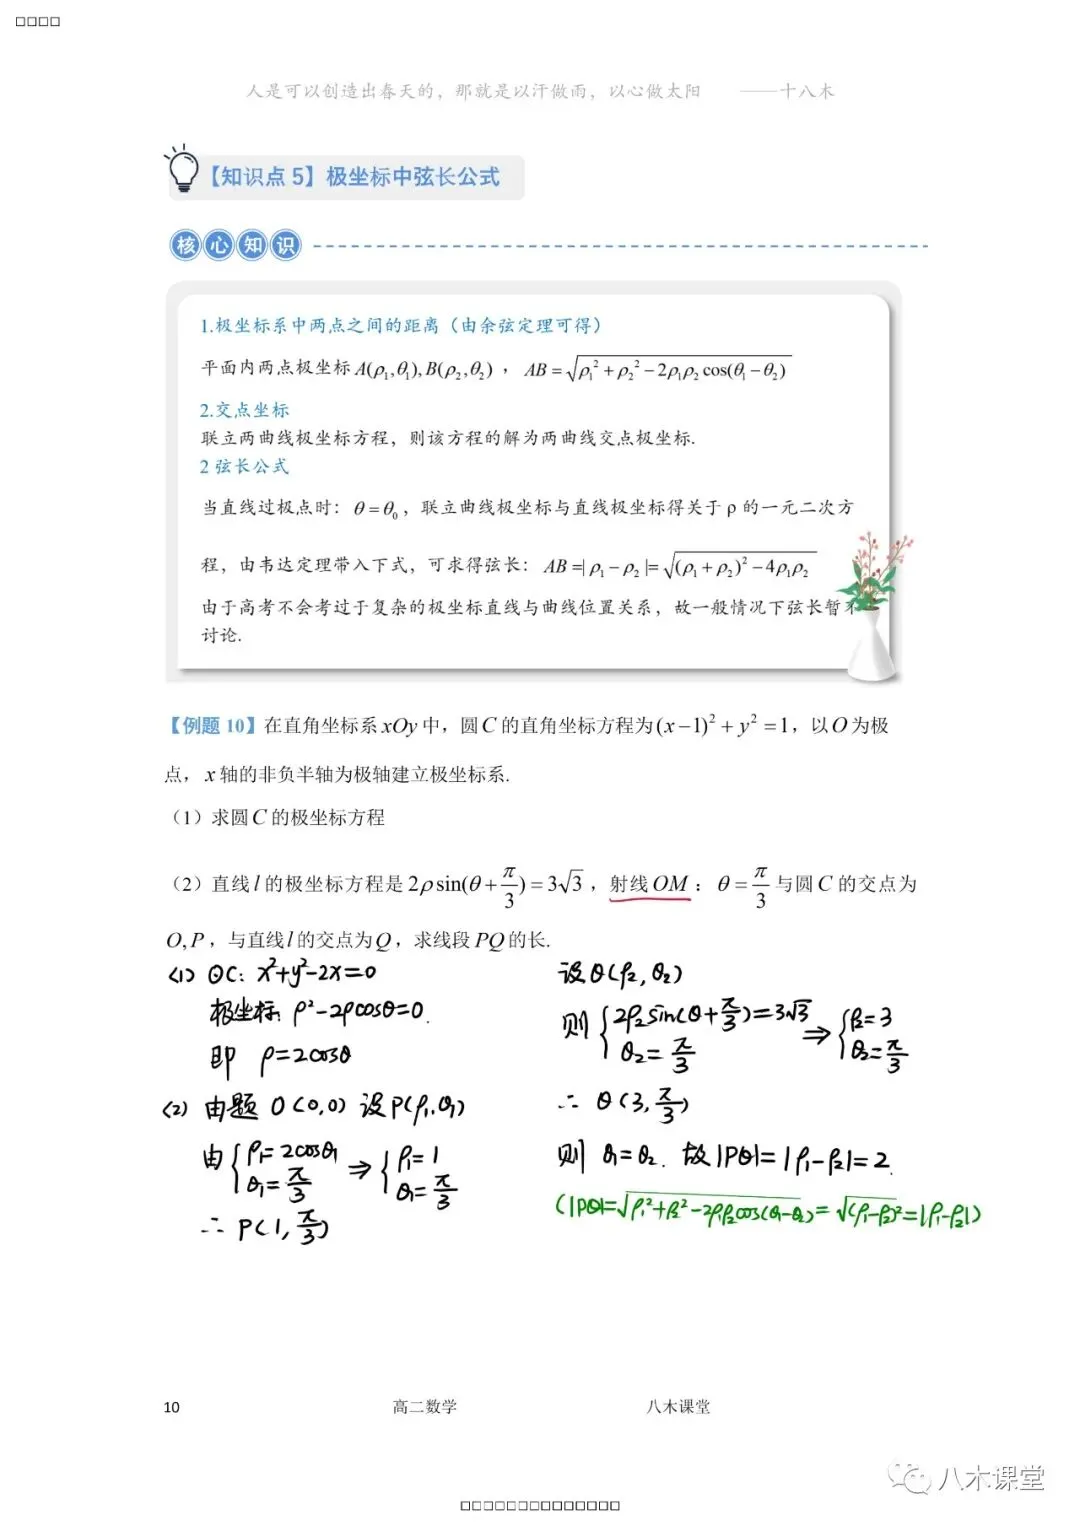 □□□□
人是可以创造出春天的，那就是以汗做雨，以心做太阳 ——十八木
【知识点 5】极坐标中弦长公式
核心知识
1.极坐标系中两点之间的距离（由余弦定理可得）
平面内两点极坐标 A(ρ₁,θ₁), B(ρ₂,θ₂) ，AB = √(ρ₁² + ρ₂² − 2ρ₁ρ₂ cos(θ₁ − θ₂))
2.交点坐标
联立两曲线极坐标方程，则该方程的解为两曲线交点极坐标.
2 弦长公式
当直线过极点时：θ = θ₀，联立曲线极坐标与直线极坐标得关于 ρ 的一元二次方
程，由韦达定理带入下式，可求得弦长：AB =| ρ₁ − ρ₂ |= √((ρ₁ + ρ₂)² − 4ρ₁ρ₂)
由于高考不会考过于复杂的极坐标直线与曲线位置关系，故一般情况下弦长暂不
讨论.
【例题 10】在直角坐标系 xOy 中，圆 C 的直角坐标方程为 (x −1)² + y² =1，以 O 为极
点，x 轴的非负半轴为极轴建立极坐标系.
（1）求圆 C 的极坐标方程
（2）直线 l 的极坐标方程是 2ρ sin(θ + π/3) = 3√3，射线 OM：θ = π/3 与圆 C 的交点为
O, P，与直线 l 的交点为 Q，求线段 PQ 的长.
(1) ⊙C: x²+y²-2x=0
极坐标: ρ²-2ρcosθ=0.
即 ρ=2cosθ
(2) 由题 O(0,0) 设P(ρ₁,θ₁)
由 { ρ₁=2cosθ₁ θ₁=π/3 ⇒ { ρ₁=1 θ₁=π/3
∴ P(1, π/3)
设Q(ρ₂, θ₂)
则 { 2ρ₂sin(θ+π/3)=3√3 θ₂=π/3 ⇒ { ρ₂=3 θ₂=π/3
∴ Q(3, π/3)
则 θ₁=θ₂. 故|PQ|=|ρ₁-ρ₂|=2.
(|PQ|=√(ρ₁²+ρ₂²-2ρ₁ρ₂cos(θ₁-θ₂))=√(ρ₁-ρ₂)²=|ρ₁-ρ₂|)
10 高二数学 八木课堂
八木课堂
□□□□□□□□□□□□□□